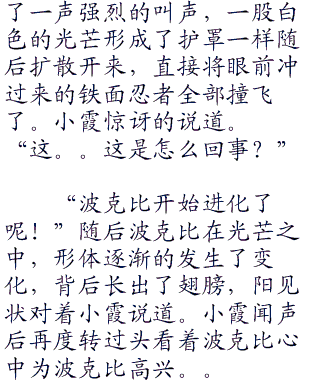 了一声强烈的叫声，一股白
色的光芒形成了护罩一样随
后扩散开来，直接将眼前冲
过来的铁面忍者全部撞飞
了。小霞惊讶的说道。
“这。。这是怎么回事？”
“波克比开始进化了
呢！”随后波克比在光芒之
中，形体逐渐的发生了变
化，背后长出了翅膀，阳见
状对着小霞说道。小霞闻声
后再度转过头看着波克比心
中为波克比高兴。。